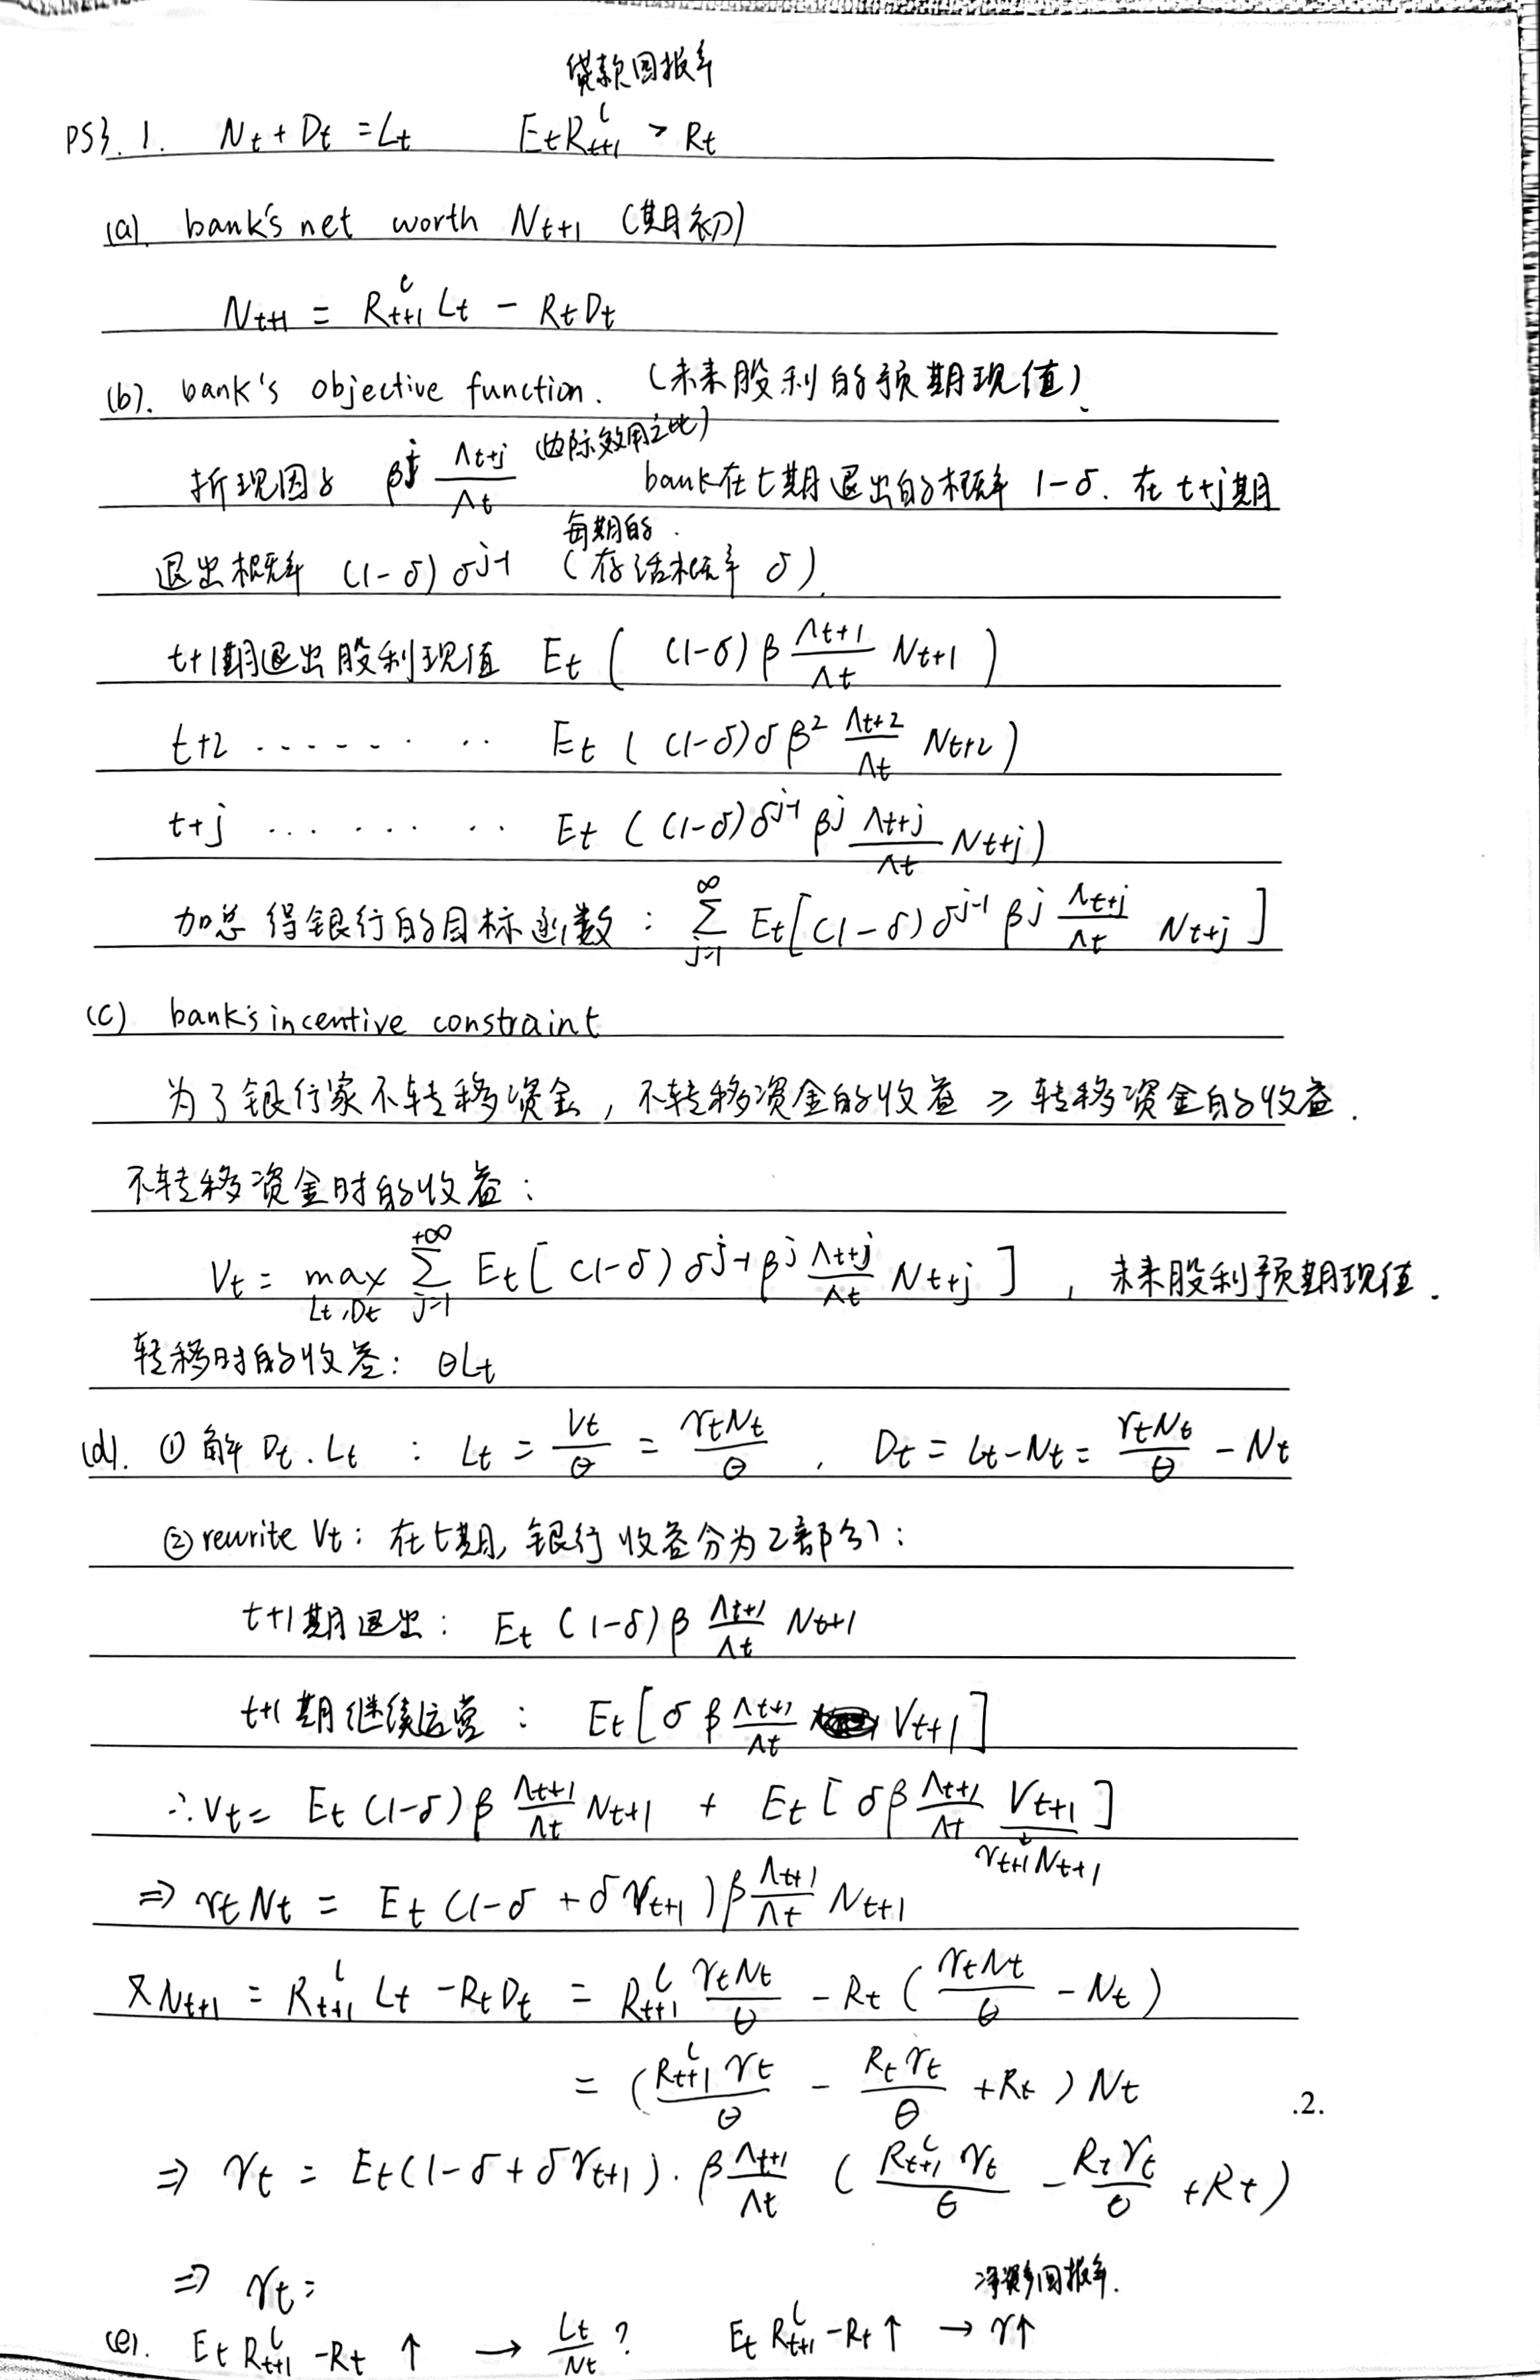 贷款回报率
PS3. 1. Nt + Dt = Lt EtR^l_{t+1} > Rt
(a). bank's net worth N_{t+1} (期初)
N_{t+1} = R^l_{t+1} Lt - RtDt
(b). bank's objective function. (未来股利的预期现值).
折现因子 β^j Λ_{t+j}/Λt (边际效用之比) bank在t期退出的概率 1-δ. 在t+j期
每期的.
退出概率 (1-δ) δ^{j-1} (存活概率 δ).
t+1期退出股利现值 Et ( (1-δ) β Λ_{t+1}/Λt N_{t+1} )
t+2 ········ Et ( (1-δ)δ β² Λ_{t+2}/Λt N_{t+2} )
t+j ········ Et ( (1-δ)δ^{j-1} β^j Λ_{t+j}/Λt N_{t+j} )
加总得银行的目标函数: ∑_{j=1}^{∞} Et[(1-δ) δ^{j-1} β^j Λ_{t+j}/Λt N_{t+j} ]
(c) bank's incentive constraint
为了银行家不转移资金, 不转移资金的收益 ≥ 转移资金的收益.
不转移资金时的收益:
Vt = max_{Lt,Dt} ∑_{j=1}^{+∞} Et[ (1-δ) δ^{j-1} β^j Λ_{t+j}/Λt N_{t+j} ] , 未来股利预期现值.
转移时的收益: θLt
(d). ① 解 Dt. Lt : Lt = Vt/θ = γtNt/θ , Dt = Lt-Nt = γtNt/θ - Nt
② rewrite Vt: 在t期, 银行收益分为2部分:
t+1期退出: Et (1-δ) β Λ_{t+1}/Λt N_{t+1}
t+1期继续运营: Et[ δ β Λ_{t+1}/Λt V_{t+1} ]
∴ Vt = Et (1-δ) β Λ_{t+1}/Λt N_{t+1} + Et [ δβ Λ_{t+1}/Λt V_{t+1} ]
γ_{t+1}N_{t+1}
⇒ γtNt = Et (1-δ + δγ_{t+1}) β Λ_{t+1}/Λt N_{t+1}
又N_{t+1} = R^l_{t+1} Lt - RtDt = R^l_{t+1} γtNt/θ - Rt ( γtNt/θ - Nt )
= ( R^l_{t+1} γt/θ - Rtγt/θ + Rt ) Nt
.2.
⇒ γt = Et(1-δ+δγ_{t+1}) · β Λ_{t+1}/Λt ( R^l_{t+1} γt/θ - Rtγt/θ + Rt )
⇒ γt =
净资产回报率.
(e). Et R^l_{t+1} - Rt ↑ → Lt/Nt ? Et R^l_{t+1} - Rt ↑ → γ↑